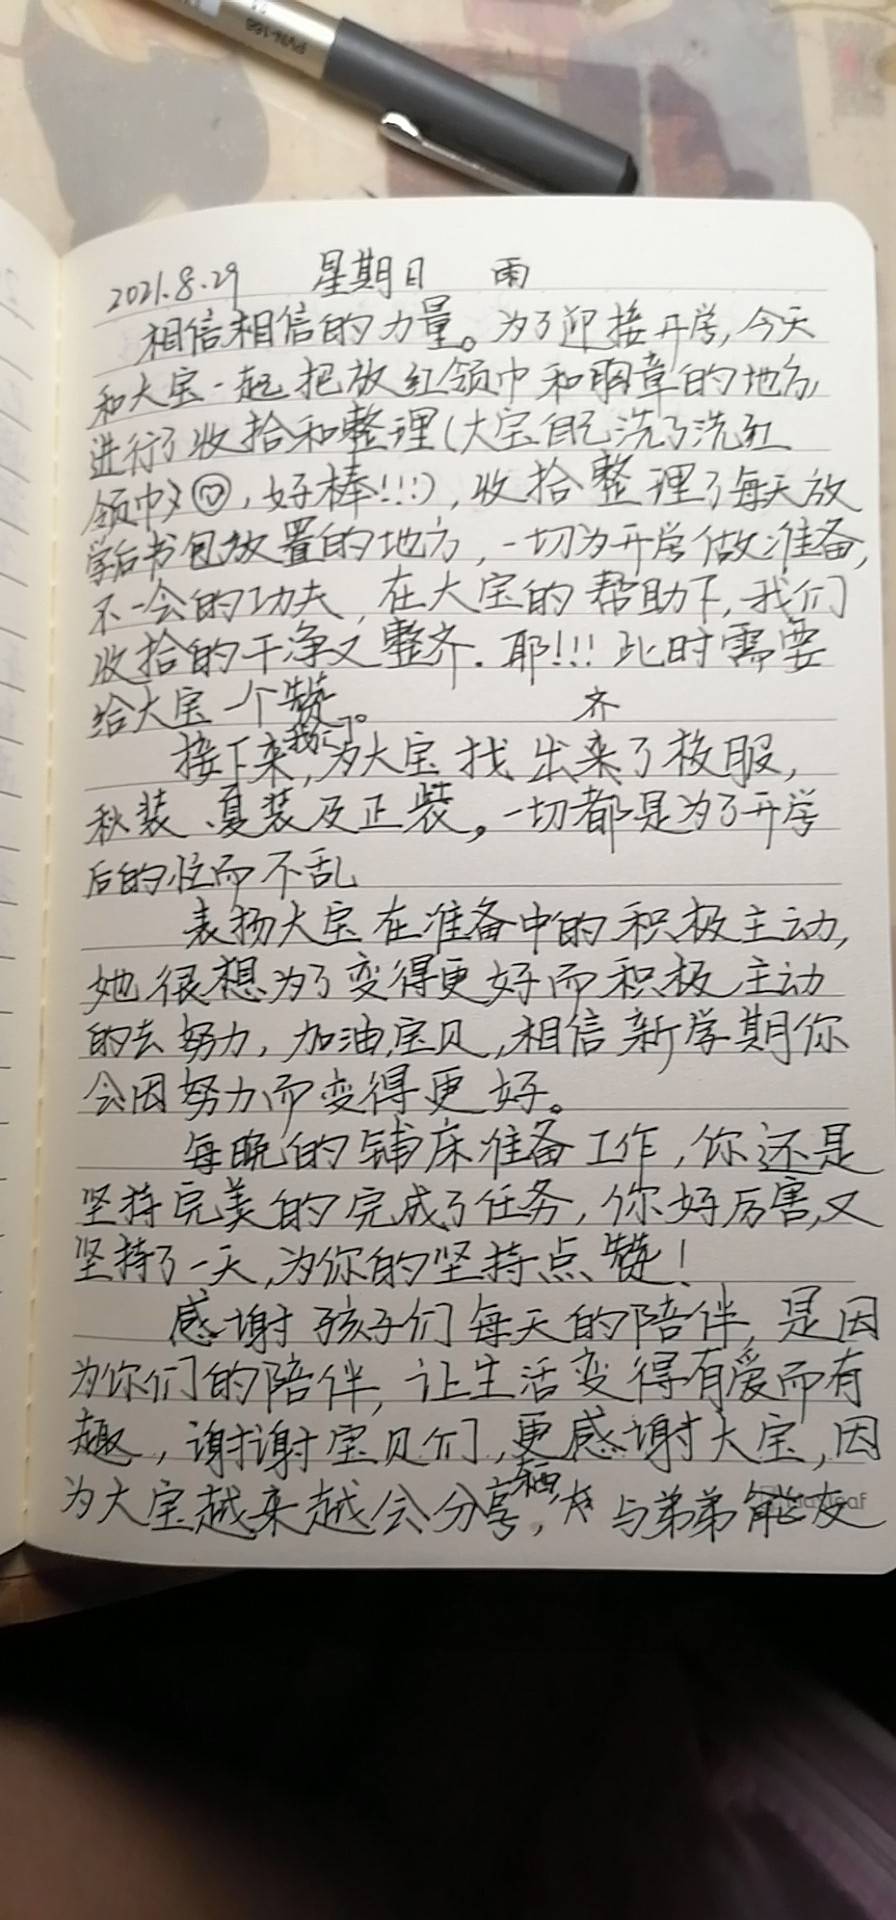 2021.8.29 星期日 雨
相信相信的力量。为了迎接开学,今天
和大宝一起把放红领巾和胸章的地方,
进行了收拾和整理(大宝自己洗了洗红
领巾,好棒!!!),收拾整理了每天放
学后书包放置的地方,一切为开学做准备,
不一会的功夫,在大宝的帮助下,我们
收拾的干净又整齐.耶!!!此时需要
给大宝一个赞。
齐
我们
接下来,为大宝找出来了校服,
秋装、夏装及正装。一切都是为了开学
后的忙而不乱
表扬大宝在准备中的积极主动,
她很想为了变得更好而积极主动
的去努力,加油,宝贝,相信新学期你
会因努力而变得更好。
每晚的铺床准备工作,你还是
坚持完美的完成了任务,你好厉害,又
坚持了一天,为你的坚持点赞!
感谢孩子们每天的陪伴,是因
为你们的陪伴,让生活变得有爱而有
趣,谢谢宝贝们,更感谢大宝,因
为大宝越来越会分享,与弟弟能友